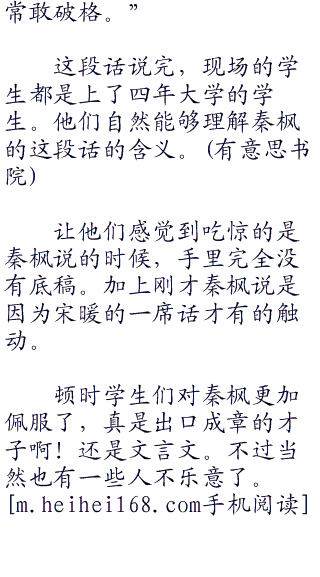 常敢破格。”
这段话说完，现场的学
生都是上了四年大学的学
生。他们自然能够理解秦枫
的这段话的含义。(有意思书
院)
让他们感觉到吃惊的是
秦枫说的时候，手里完全没
有底稿。加上刚才秦枫说是
因为宋暖的一席话才有的触
动。
顿时学生们对秦枫更加
佩服了，真是出口成章的才
子啊！还是文言文。不过当
然也有一些人不乐意了。
[m.heihei168.com手机阅读]